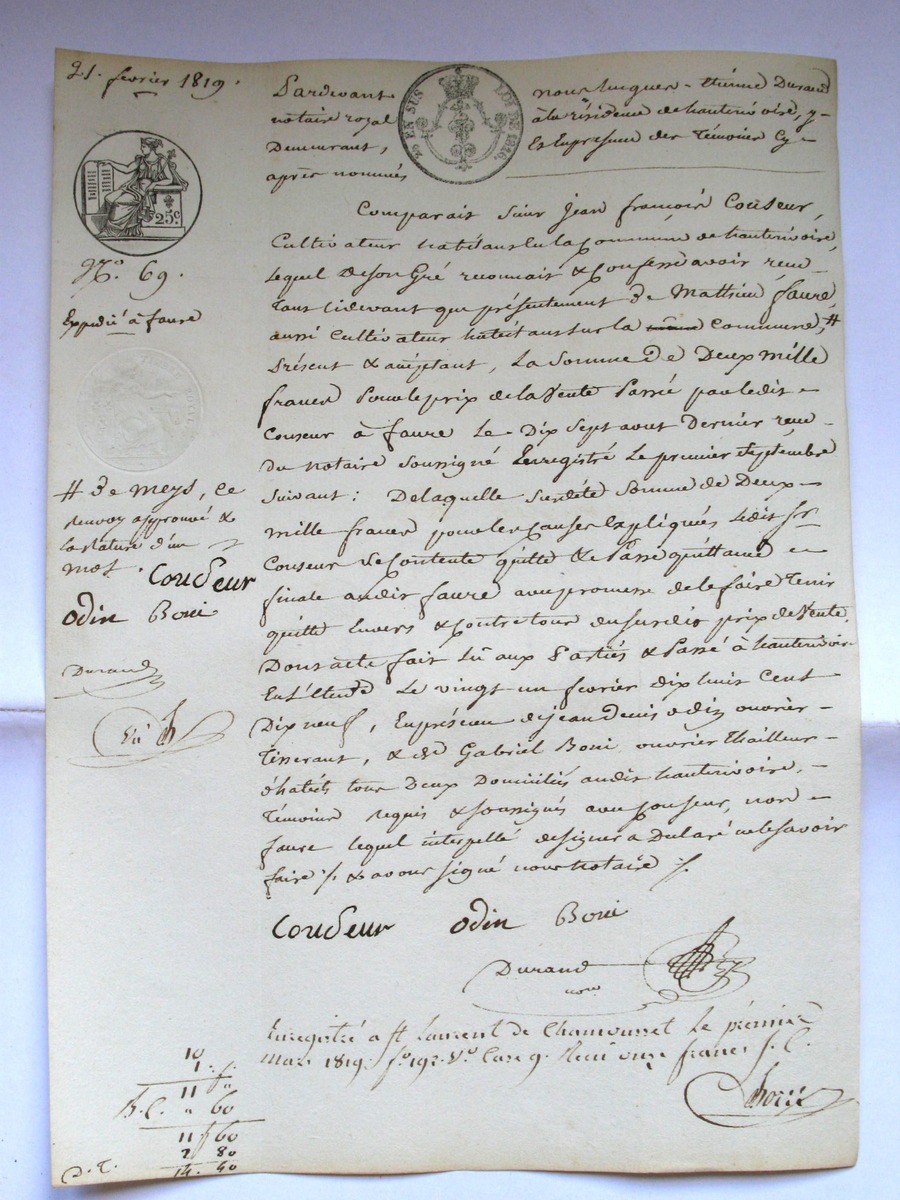 21. fevrier 1819.
Pardevant nous hugues-étiéne Durand
notaire royal à la résidence de hauterivoire, y
Demeurant, Et en presence des Temoins Cy-
après nommés
20 EN SUS LOI DE 1816.
25c
No. 69.
Expedié à faure
Comparait Sieur Jean françois Couseur,
Cultivateur habitant en la Commune de hauterivoire,
Lequel de son Gré reconnait & Confesse avoir recu
Tant cidevant que présentement de Mathieu faure,
aussi Cultivateur habitant sur la Commune, #
Présent & acceptant, La Somme De Deux mille
francs Pour le prix de la Vente Passé par ledit
Couseur à faure Le Dix Sept aout Dernier recu
du notaire soussigné Enregistré Le premier Septembre
suivant: De laquelle susdite Somme de Deux
mille francs pour les causes Expliqués Ledit Sr
Couseur se Contente quitte & Passe quittance
finale audit faure avec promesse de le faire Tenir
quitte Envers & Contre tous du susdit prix de Vente.
Dont acte fait Lu aux Parties & Passé à hauterivoire
En L'étude Le vingt un fevrier dix huit Cent
Dix neuf, En présence de jean Denis odin ouvrier
Tisserant, & de Gabriel Boni ouvrier Thailleur
d'habits tous Deux Domiciliés audit hauterivoire,
Témoins requis & soussignés avec Couseur, non
faure lequel interpellé de signer a Déclaré ne le savoir
faire & avons signé nous notaire
# De meys, ce
renvoy approuvé &
la rature d'un
mot. Couseur
Odin Boni
Durand
Couseur Odin Boni
Durand
nore
Enregistré a St Laurent de Chamousset Le premier
Mars 1819. fo 192. Vo Case 9. Recu onze francs S. C.
10
1.
11 "
S.C. " 60
11 f 60
2 80
14. 40